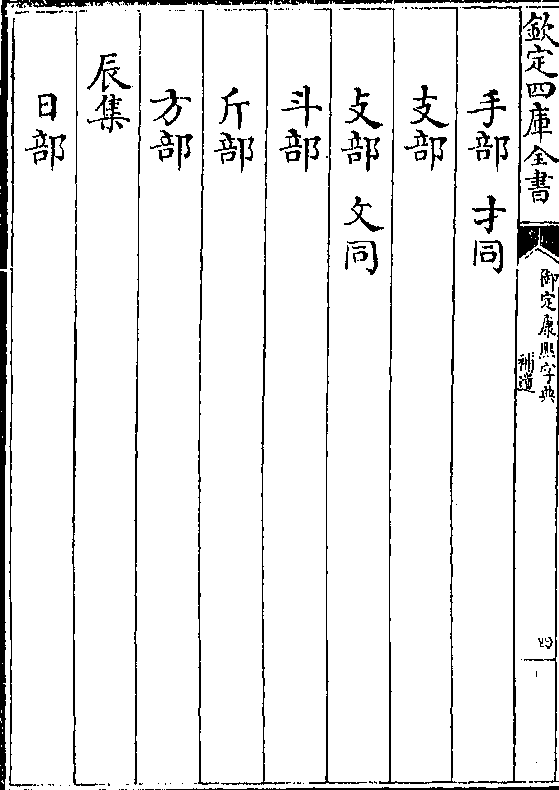 欽定四庫全書
御定康熙字典
補遺
四
手部 才同
支部
攴部 攵同
斗部
斤部
方部
辰集
日部